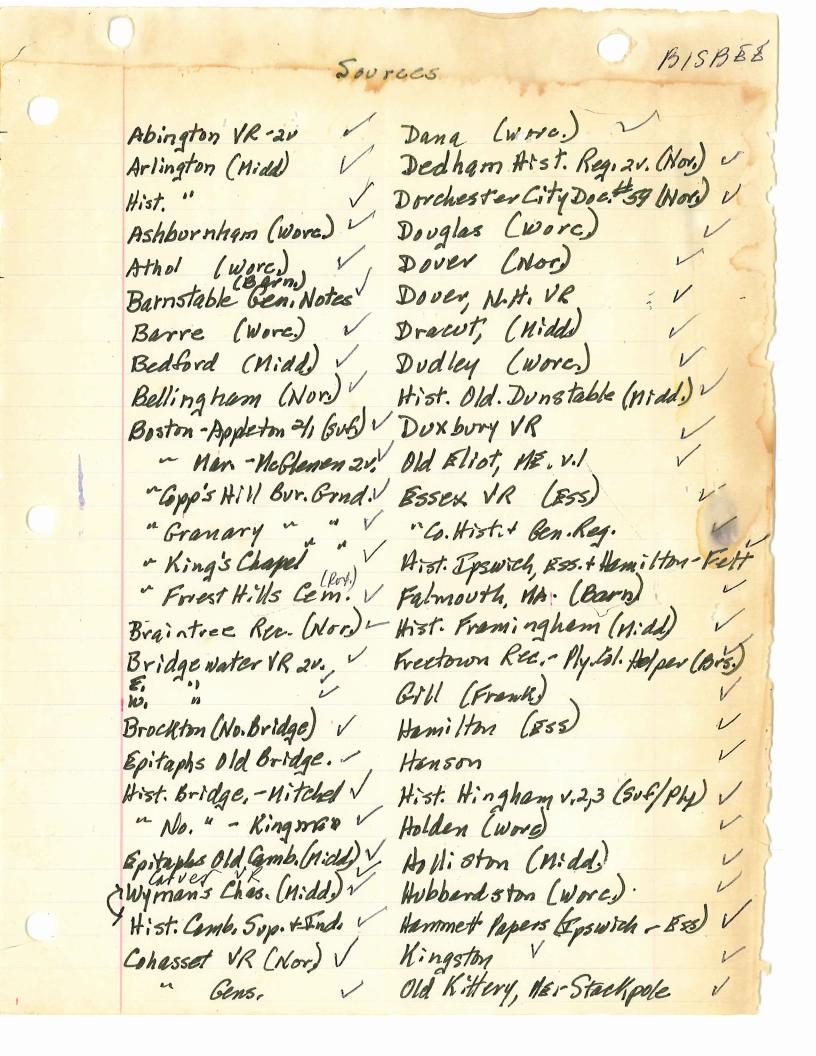 BISBEE
Sources
Abington VR - 2v ✓
Arlington (Midd) ✓
Hist. " ✓
Ashburnham (Worc.) ✓
Athol (Worc.) ✓
(Barn.)
Barnstable Gen. Notes ✓
Barre (Worc.) ✓
Bedford (Midd.) ✓
Bellingham (Nor.) ✓
Boston - Appleton 2/1 (Suf.) ✓
" Mar. - McGlenen 2v. ✓
" Copp's Hill Bur. Grnd. ✓
" Granary " " ✓
" King's Chapel " " ✓
(Rox.)
" Forest Hills Cem. ✓
Braintree Rec. (Nor.) ✓
Bridgewater VR 2v. ✓
E. " ✓
W. " ✓
Brockton (No. Bridge) ✓
Epitaphs Old Bridge. ✓
Hist. Bridge. - Mitchel ✓
" No. " - Kingman ✓
Epitaphs Old Camb. (Midd.) ✓
Carver VR ✓
Wyman's Chas. (Midd.) ✓
Hist. Camb. Sup. + Ind. ✓
Cohasset VR (Nor.) ✓
" Gens. ✓
Dana (Worc.) ✓
Dedham Hist. Reg. 2v. (Nor.) ✓
Dorchester City Doc. #59 (Nor.) ✓
Douglas (Worc.) ✓
Dover (Nor.) ✓
Dover, N.H. VR ✓
Dracut, (Midd.) ✓
Dudley (Worc.) ✓
Hist. Old. Dunstable (Midd.) ✓
Duxbury VR ✓
Old Eliot, ME. v.1 ✓
Essex VR (Ess) ✓
" Co. Hist. + Gen. Reg. ✓
Hist. Ipswich, Ess. + Hamilton - Felt ✓
Falmouth, MA. (Barn) ✓
Hist. Framingham (Midd) ✓
Freetown Rec. - Ply. Col. Helper (Brs.) ✓
Gill (Frank.) ✓
Hamilton (Ess) ✓
Hanson ✓
Hist. Hingham v. 2, 3 (Suf/Ply) ✓
Holden (Worc) ✓
Holliston (Midd.) ✓
Hubbardston (Worc.) ✓
Hammett Papers (Ipswich - Ess) ✓
Kingston ✓
Old Kittery, ME. - Stackpole ✓